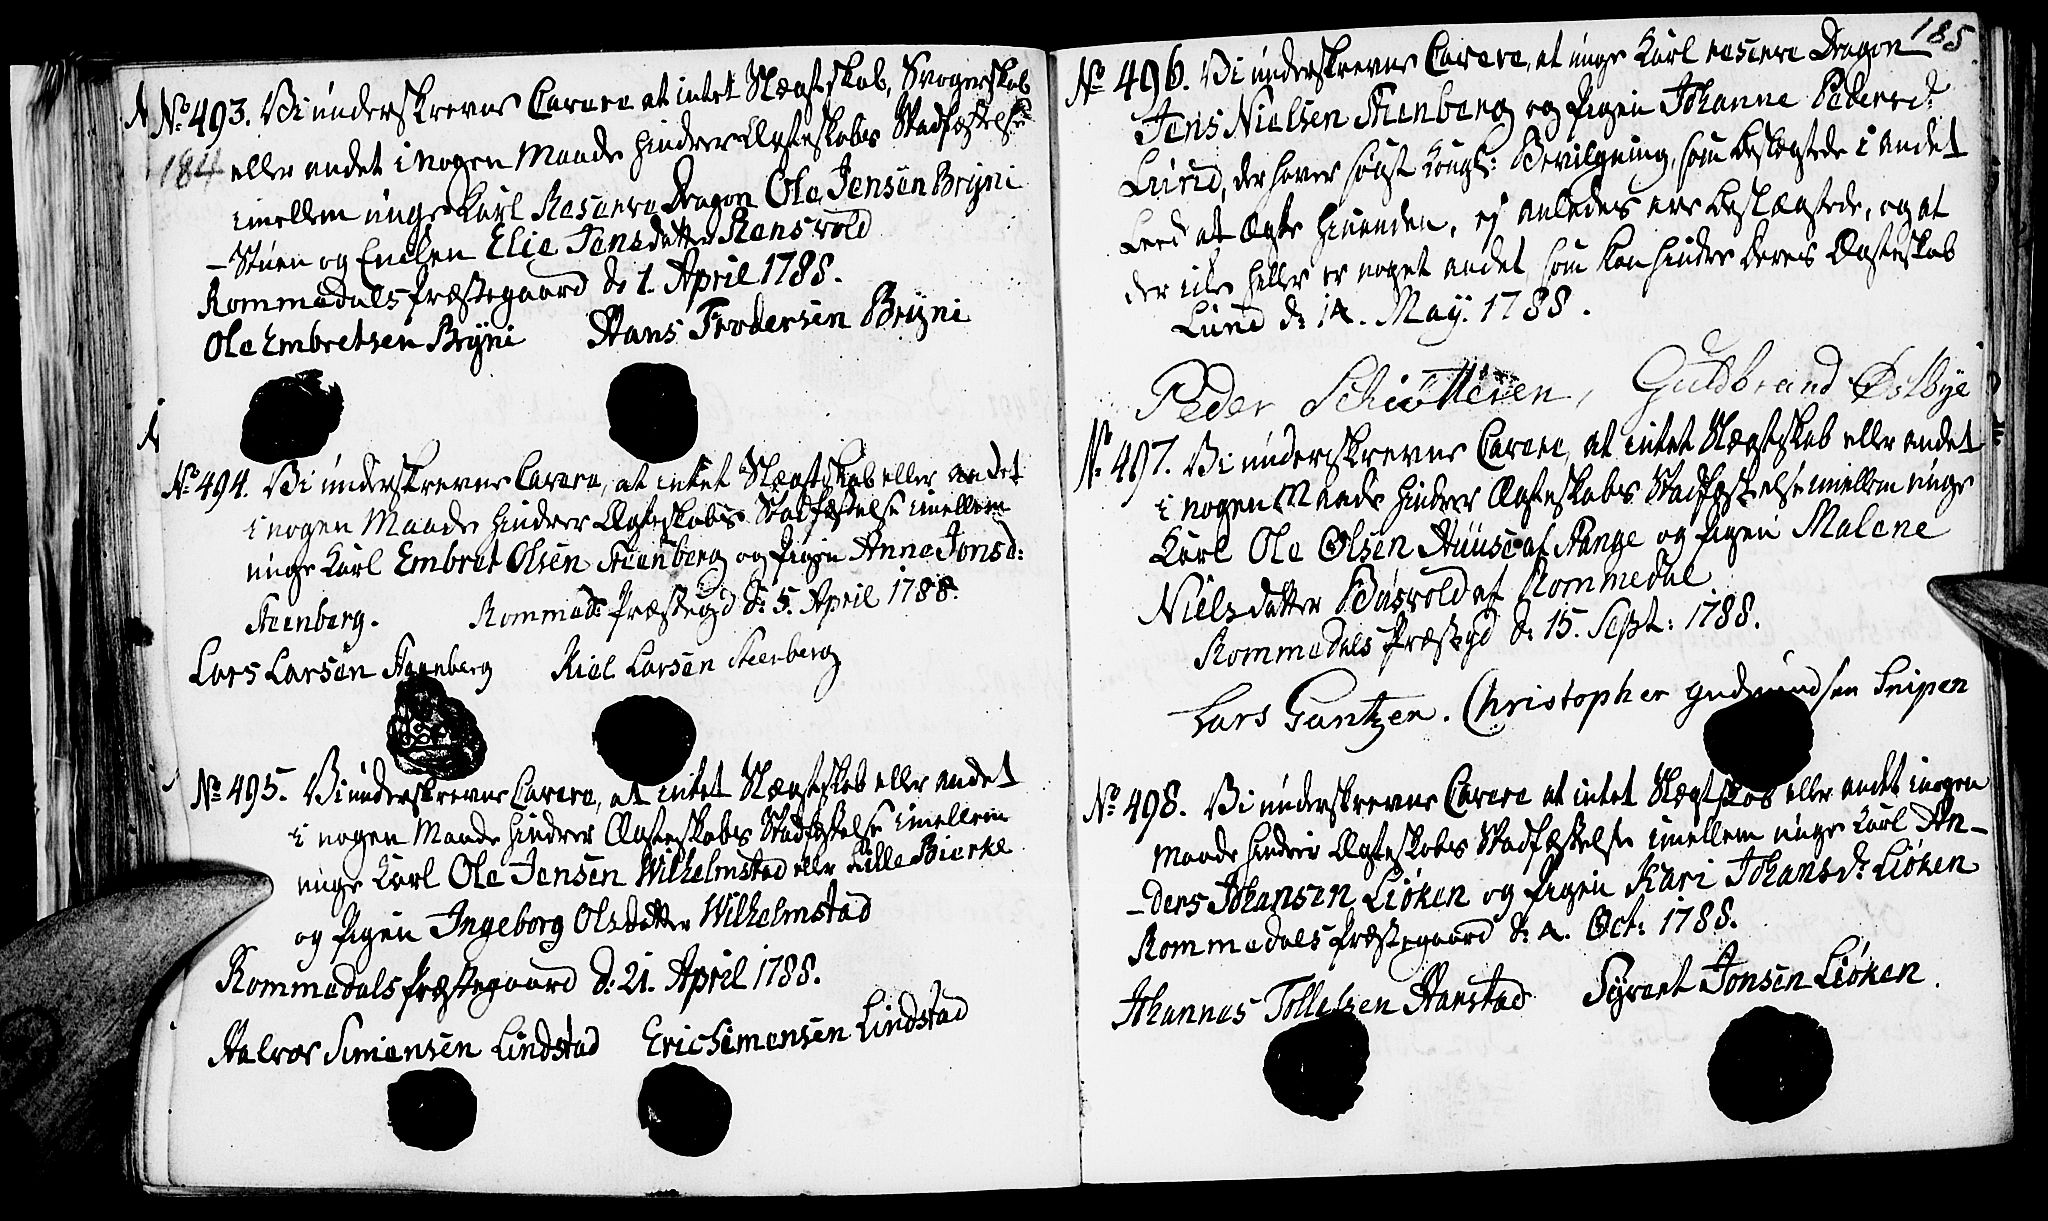 184
No 493. Vi underskrevne Cavere at intet Slægtskab, Svogerskab
eller andet i nogen Maade hindrer Ægteskabs Stadfæstelse
imellem unge Karl Reserve Dragon Ole Jensen Bryni
-Stuen og Enchen Elie Jensdatter Rensvold
Rommedals Præstegaard d: 1. April 1788.
Ole Embretsen Bryni Hans Frodersen Bryni
No 494. Vi underskrevne Cavere, at intet Slægtskab eller andet
i nogen Maade hindrer Ægteskabs Stadfæstelse imellem
unge Karl Embret Olsen Steenberg og Pigen Anne Jonsd:
Steenberg. Rommed: Præstegd d: 5. April 1788.
Lars Larsen Steenberg Kiel Larsen Steerberg
No 495. Vi underskrevne Cavere, at intet Slægtskab eller andet
i nogen Maade hindrer Ægteskabs Stadfæstelse imellem
unge Karl Ole Jensen Wilhelmstad eller Lille Bierke
og Pigen Ingeborg Olsdatter Wilhelmstad
Rommedals Præstegaard d: 21. April 1788.
Halvor Simensen Lindstad Eric Simensen Lindstad
185
No 496. Vi underskrevne Cavere, at unge Karl reserve Dragon
Jens Nielsen Stenberg og Pigen Johanne Pedersd:
Lund, der haver søgt Kongl: Bevilgning, som beslægtede i andet
Leed at Ægte hinanden, ej anledes ere beslægtede, og at
der ikke heller er noget andet, som kan hindre deres Ægteskab
Lund d: 14. May. 1788.
Peder Schiøttesen, Guldbrand Østbye
No 497. Vi underskrevne Cavere, at intet Slægtskab eller andet
i nogen Maade hindrer Ægteskabs Stadfæstelse imellem unge
Karl Ole Olsen Huuse af Stange og Pigen Malene
Nielsdatter Busvold af Rommedal
Rommedals Præstegd d: 15. Sept: 1788.
Lars Gantzen. Christopher Gudmundsen Snipen
No 498. Vi underskrevne Cavere at intet Slægtskab eller andet i nogen
Maade hindrer Ægteskabs Stadfæstelse imellem unge Karl An-
-ders Johansen Liøken og Pigen Kari Johansd: Liøken
Rommedals Præstegaard d: 4. Oct: 1788.
Johannes Tollefsen Harstad Syvert Jonsen Liøken.